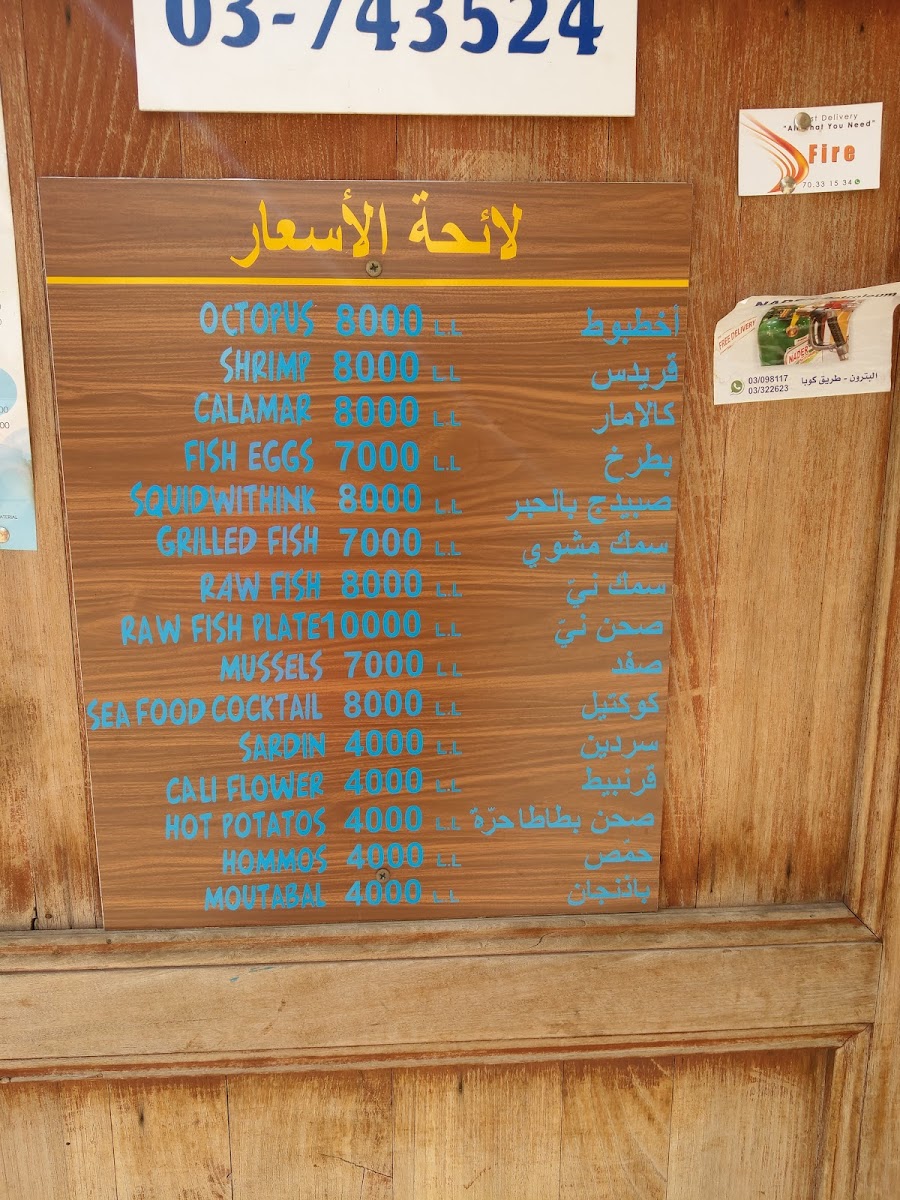 03-743524
لائحة الأسعار
OCTOPUS 8000 L.L أخطبوط
SHRIMP 8000 L.L قريدس
CALAMAR 8000 L.L كالامار
FISH EGGS 7000 L.L بطرخ
SQUIDWITHINK 8000 L.L صبيدج بالحبر
GRILLED FISH 7000 L.L سمك مشوي
RAW FISH 8000 L.L سمك نيّ
RAW FISH PLATE10000 L.L صحن نيّ
MUSSELS 7000 L.L صفد
SEA FOOD COCKTAIL 8000 L.L كوكتيل
SARDIN 4000 L.L سردين
CALI FLOWER 4000 L.L قرنبيط
HOT POTATOS 4000 L.L صحن بطاطا حرّة
HOMMOS 4000 L.L حمّص
MOUTABAL 4000 L.L باذنجان
Delivery
You Need"
Fire
70.33 15 34
FREE DELIVERY
NADER
03/098117
03/322623
البترون - طريق كوبا